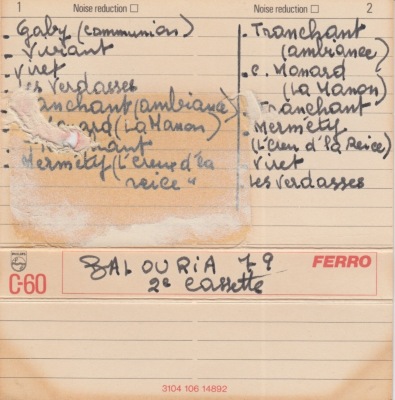 1 Noise reduction
Noise reduction 2
- Gaby (communion)
- Vivant
- Viret
Les Verdasses
Tranchant (ambiance)
(La Manon)
- Merméty (L'creux d'la
reice"
- Tranchant
(ambiance)
- C. Monard
(La Manon)
Tranchant
- Merméty
(L'creu d'la Reice)
Viret
Les Verdasses
PHILIPS
C-60
BALOURIA 79
2e Cassette
FERRO
3104 106 14892